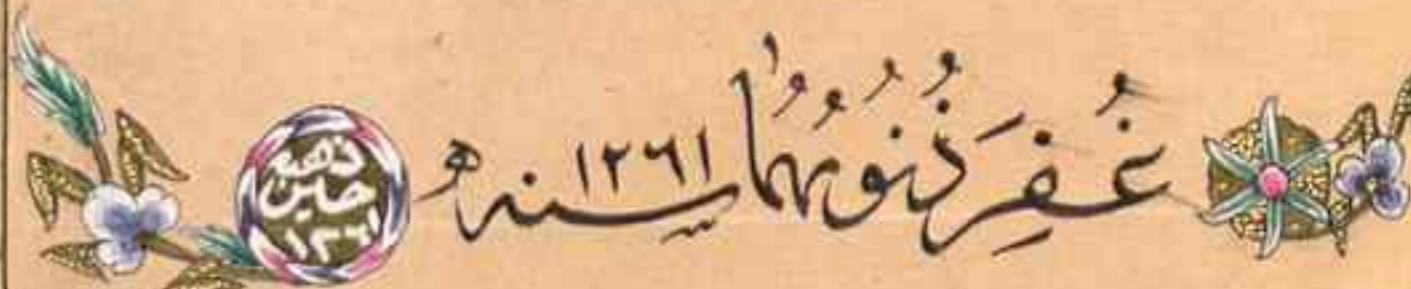 غُفِرَ ذُنُوبُهُمَا سنه ١٢٦١ ه
ذهبه
حسين
١٢٦١